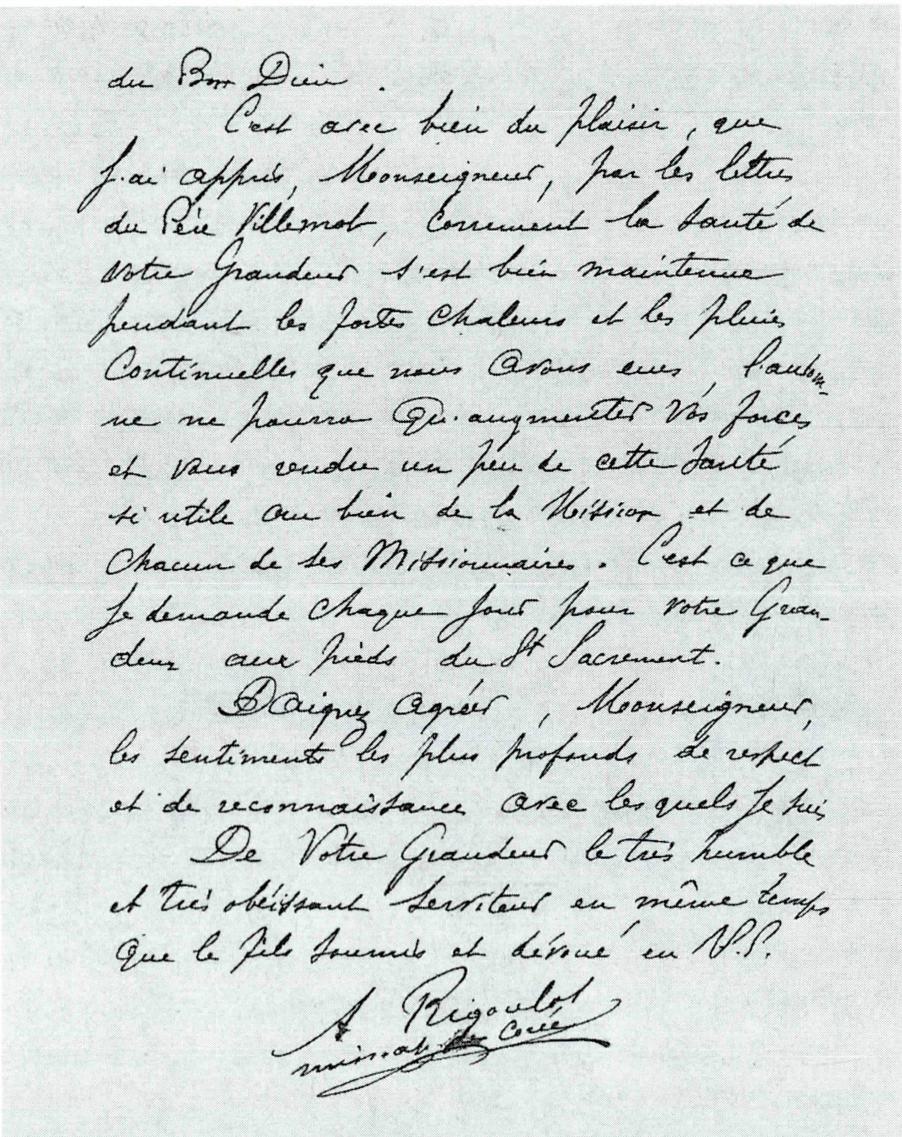 du Bon Dieu.
C'est avec bien du plaisir, que
J'ai appris, Monseigneur, par les lettres
du Père Villemot, comment la santé de
votre Grandeur s'est bien maintenue
pendant les fortes chaleurs et les pluies
continuelles que nous avons eues, l'autom-
ne ne pourra qu'augmenter vos forces
et vous rendre un peu de cette santé
si utile au bien de la Mission et de
chacun de ses Missionnaires. C'est ce que
Je demande chaque jour pour votre Gran-
deur aux pieds du St Sacrement.
Daignez agréer, Monseigneur,
les sentiments les plus profonds de respect
et de reconnaissance avec lesquels Je suis
De Votre Grandeur le très humble
et très obéissant serviteur en même temps
que le fils soumis et dévoué en N.S.
A Rigoulot
Corée